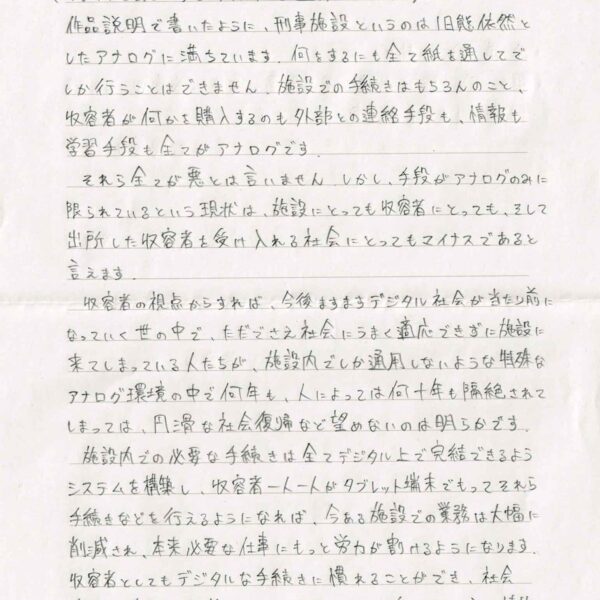 作品説明で書いたように、刑事施設というのは旧態依然と
したアナログに満ちています。何をするにも全て紙を通してで
しか行うことはできません。施設での手続きはもちろんのこと、
収容者が何かを購入するのも外部との連絡手段も、情報も
学習手段も全てがアナログです。
それら全てが悪とは言いません。しかし、手段がアナログのみに
限られているという現状は、施設にとっても収容者にとっても、そして
出所した収容者を受け入れる社会にとってもマイナスであると
言えます。
収容者の視点からすれば、今後ますますデジタル社会が当たり前に
なっていく世の中で、ただでさえ社会にうまく適応できずに施設に
来てしまっている人たちが、施設内でしか通用しないような特殊な
アナログ環境の中で何年も、人によっては何十年も隔絶されて
しまっては、円滑な社会復帰など望めないのは明らかです。
施設内での必要な手続きは全てデジタル上で完結できるよう
システムを構築し、収容者一人一人がタブレット端末でもってそれら
手続きなどを行えるようになれば、今ある施設での業務は大幅に
削減され、本来必要な仕事にもっと労力が割けるようになります。
収容者としてもデジタルな手続きに慣れることができ、社会